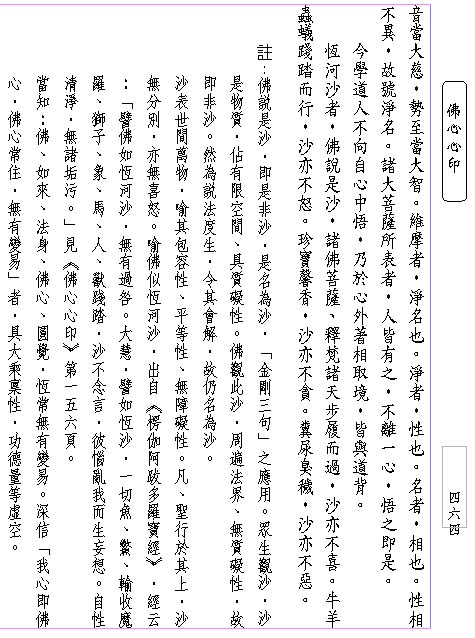 佛心心印
四六四
音當大慈，勢至當大智。維摩者，淨名也。淨者，性也。名者，相也。性相
不異，故號淨名。諸大菩薩所表者，人皆有之，不離一心，悟之即是。
今學道人不向自心中悟，乃於心外著相取境，皆與道背。
恆河沙者，佛說是沙，諸佛菩薩、釋梵諸天步履而過，沙亦不喜。牛羊
蟲蟻踐踏而行，沙亦不怒。珍寶馨香，沙亦不貪。糞尿臭穢，沙亦不惡。
註：佛說是沙，即是非沙，是名為沙，「金剛三句」之應用。眾生觀沙，沙
是物質，佔有限空間、具質礙性。佛觀此沙，周遍法界、無質礙性，故
即非沙。然為說法度生，令其會解，故仍名為沙。
沙表世間萬物，喻其包容性、平等性、無障礙性。凡、聖行於其上，沙
無分別，亦無喜怒。喻佛似恆河沙，出自《楞伽阿跋多羅寶經》，經云
：「譬佛如恆河沙，無有過咎。大慧，譬如恆沙，一切魚、鱉、輸收魔
羅、獅子、象、馬、人、獸踐踏，沙不念言，彼惱亂我而生妄想。自性
清淨，無諸垢污。」見《佛心心印》第一五六頁。
當知：佛、如來、法身、佛心、圓覺，恆常無有變易。深信「我心即佛
心，佛心常住，無有變易」者，具大乘稟性，功德量等虛空。